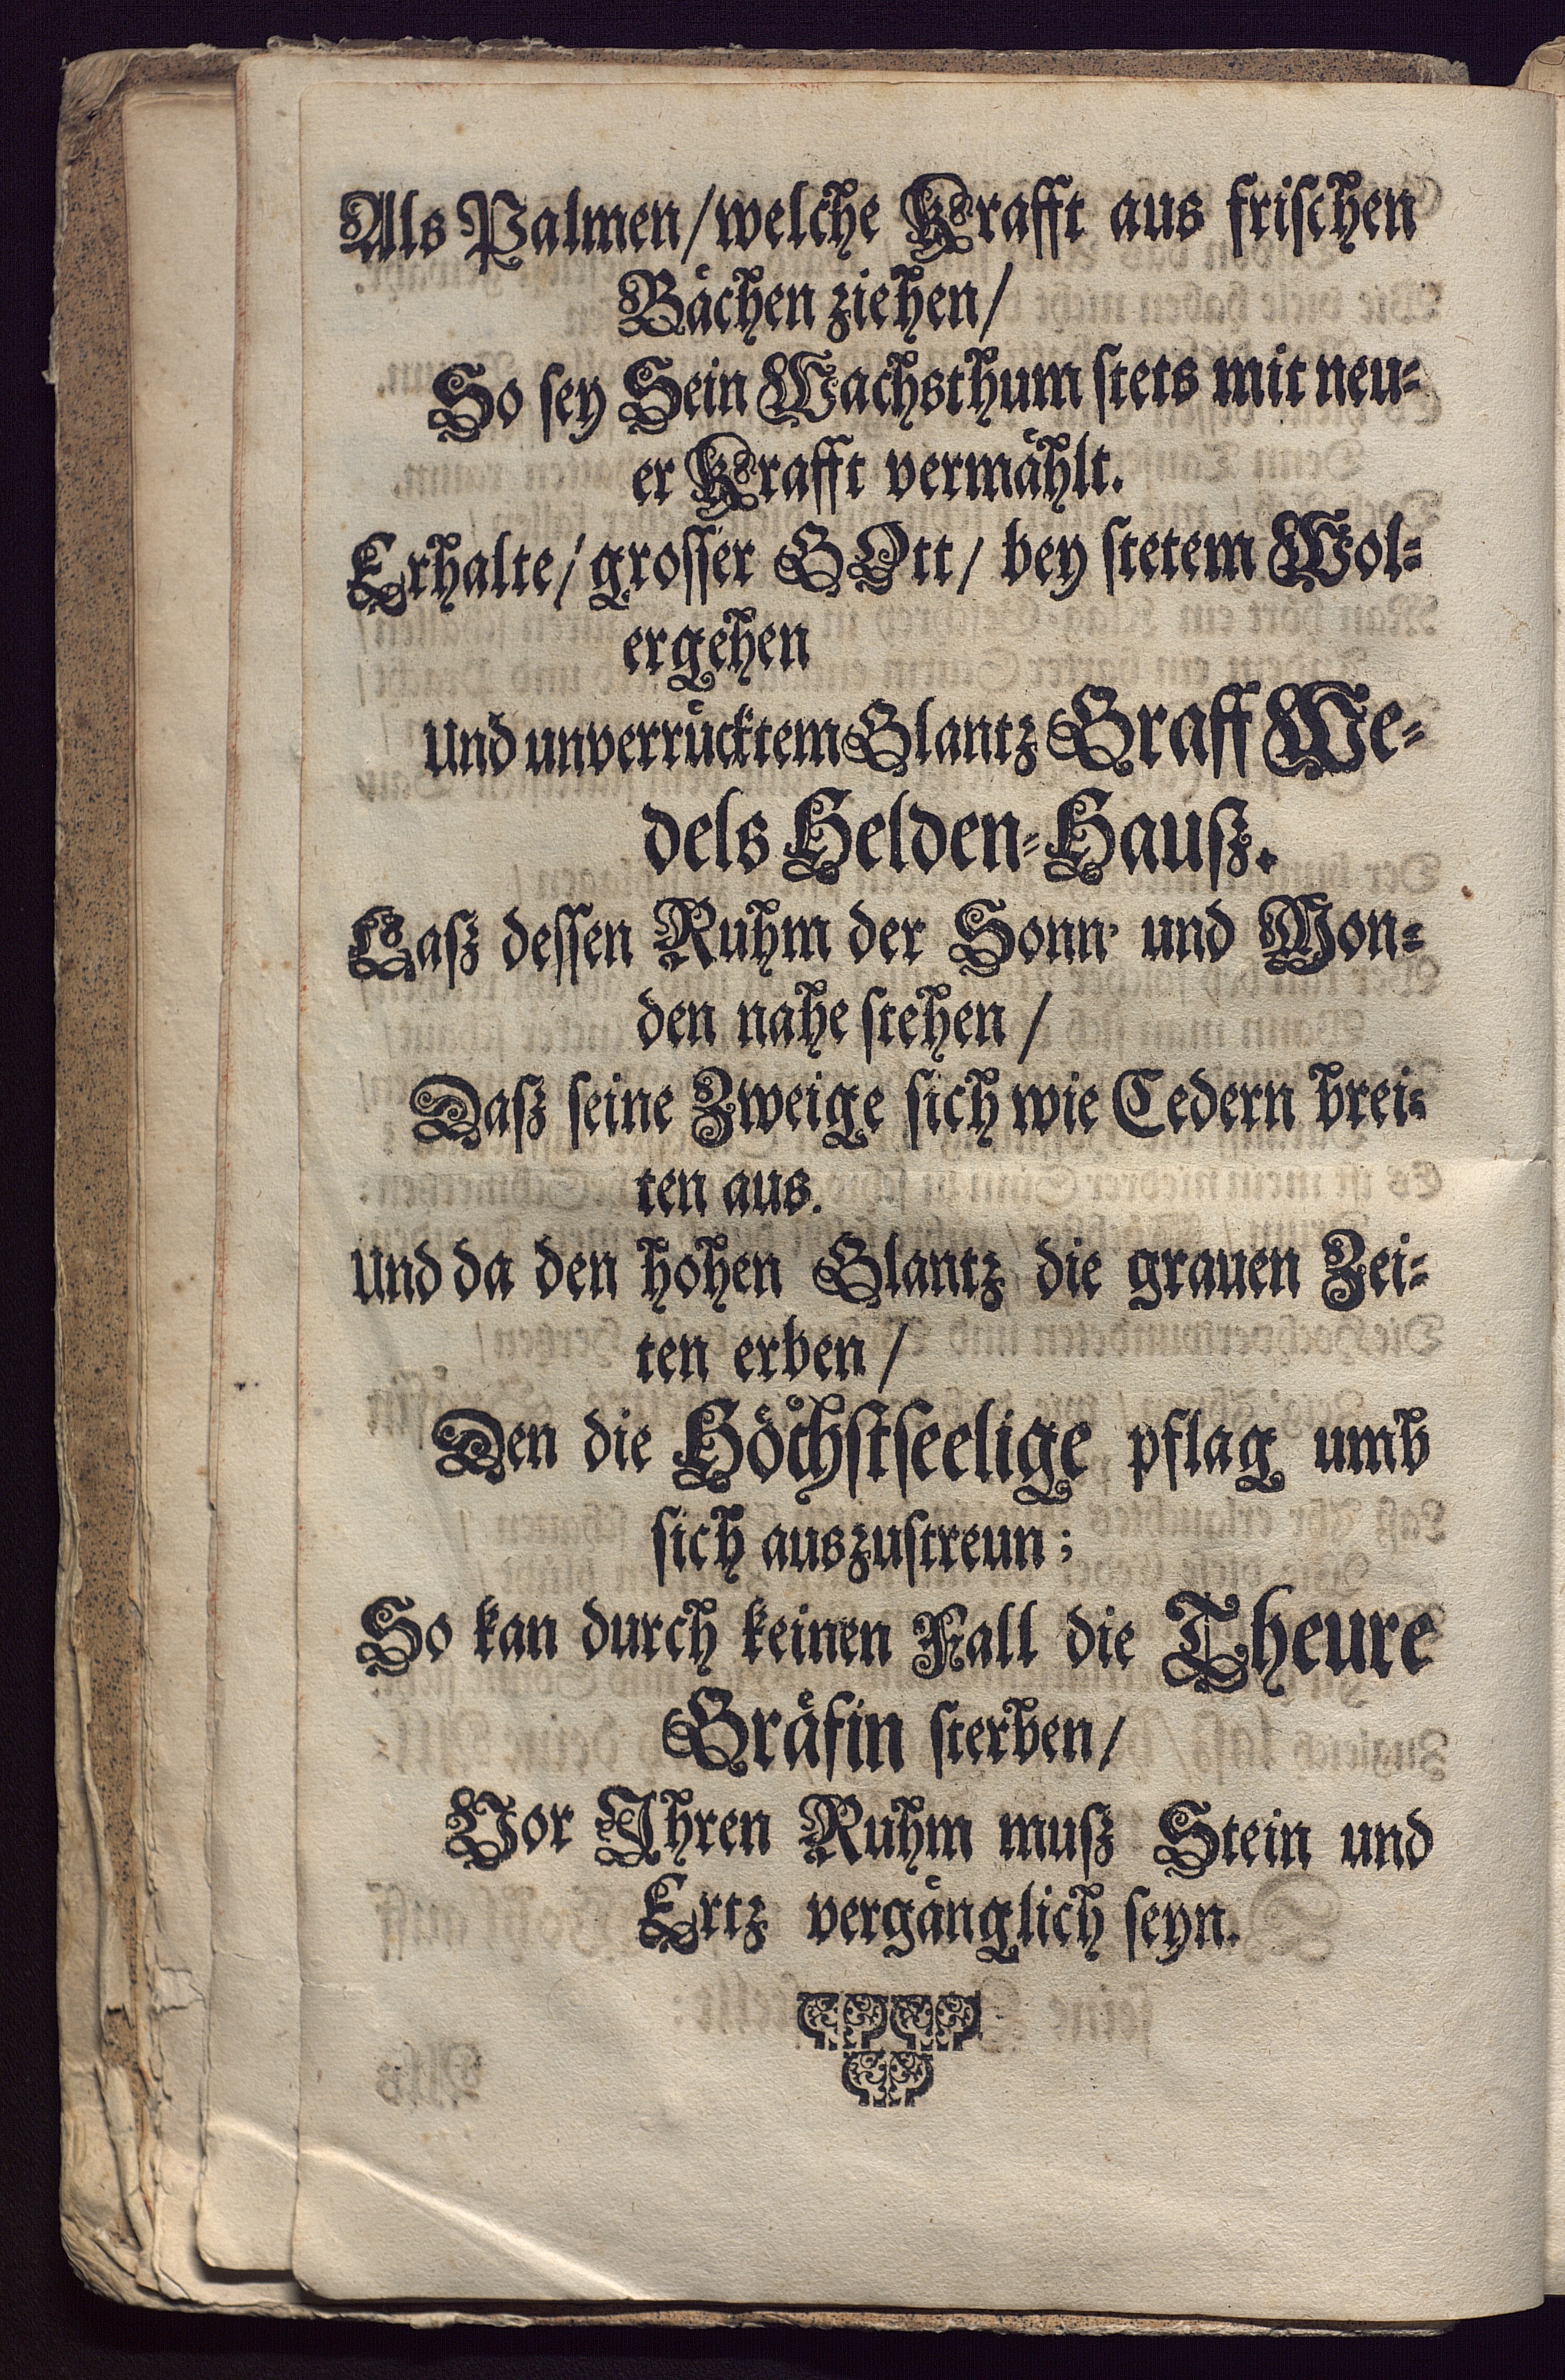 Als Palmen/welche Krafft aus frischen
Bächen ziehen/
So sey Sein Wachsthum stets mit neu-
er Krafft vermählt.
Erhalte/grosser GOtt/ bey stetem Wol-
ergehen
und unverrücktem Glantz Graff We-
dels Helden-Hauß.
Laß dessen Ruhm der Sonn- und Mon-
den nahe stehen/
Daß seine Zweige sich wie Cedern brei-
ten aus.
und da den hohen Glantz die grauen Zei-
ten erben/
Den die Höchstseelige pflag umb
sich auszustreun;
So kan durch keinen Fall die Theure
Gräfin sterben/
Vor Ihren Ruhm muß Stein und
Ertz vergänglich seyn.